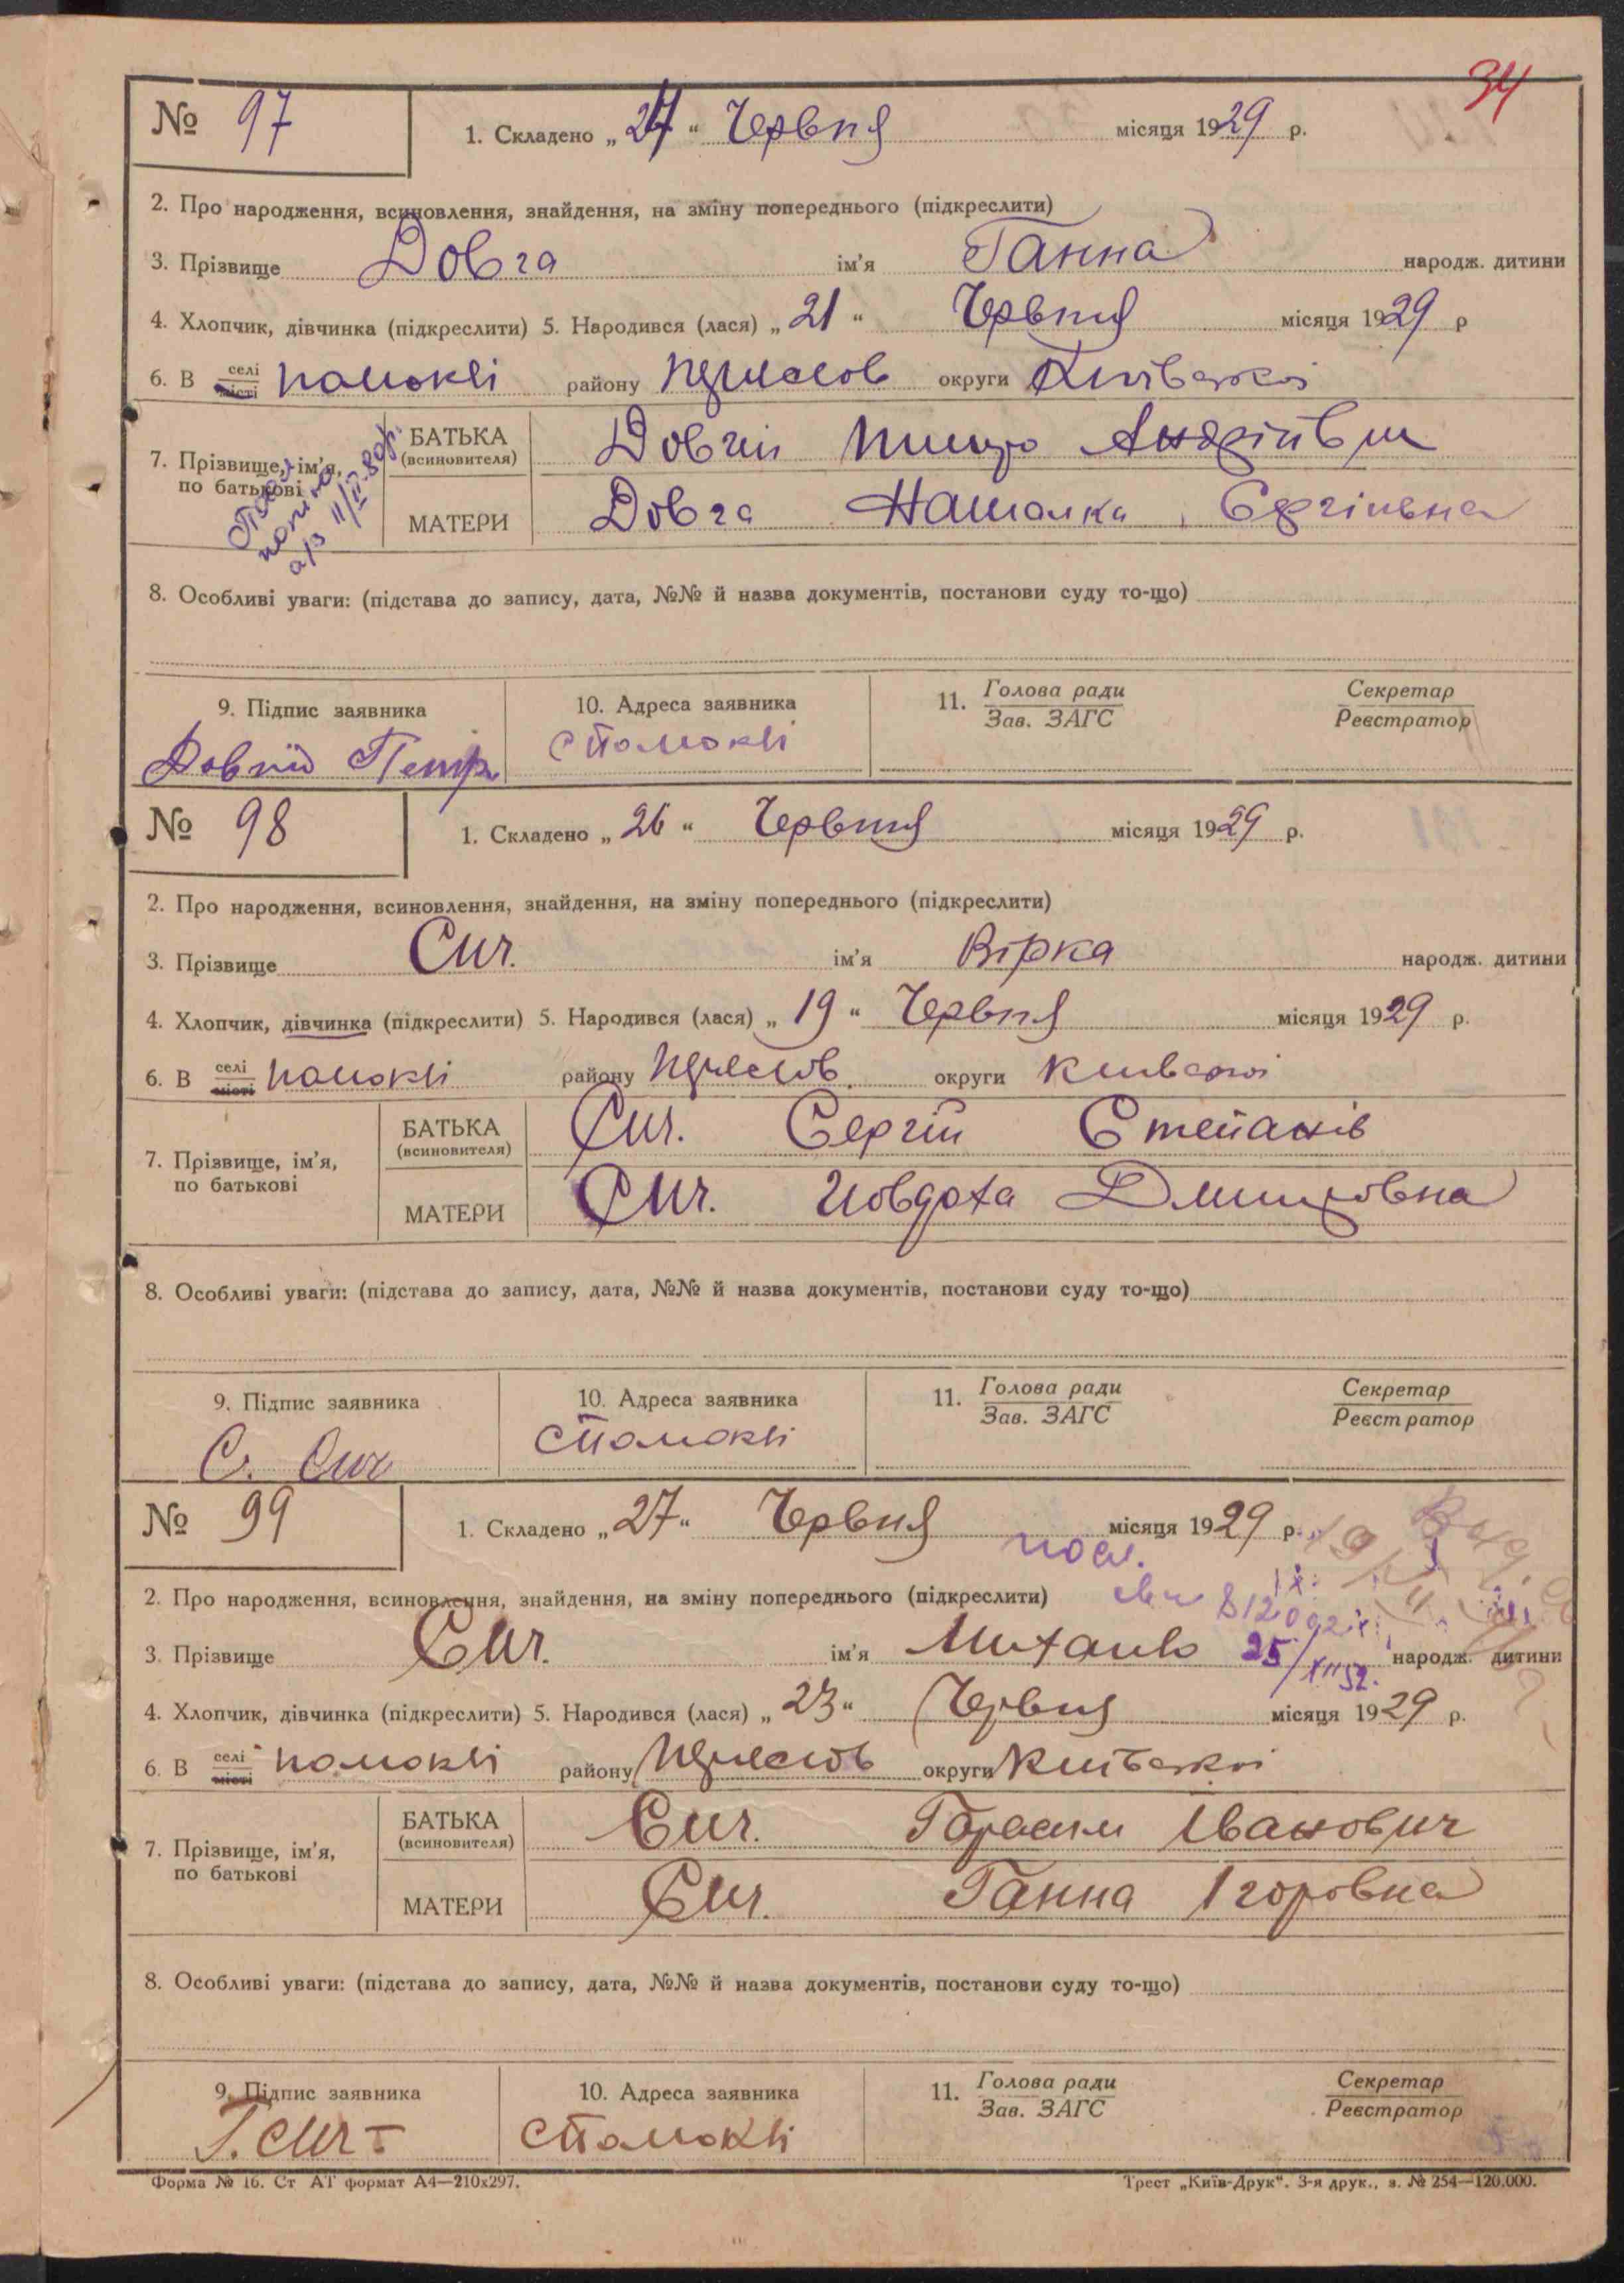 34
№ 97 1. Складено „ 24 “ Червня місяця 1929 р.
2. Про народження, всиновлення, знайдення, на зміну попереднього (підкреслити)
3. Прізвище Довга ім'я Ганна народж. дитини
4. Хлопчик, дівчинка (підкреслити) 5. Народився (лася) „ 21 “ Червня місяця 1929 р
6. В селі місті Помоклі району округи Київської
7. Прізвище, ім'я, по батькові
БАТЬКА (всиновителя) Довгий Андріїв
МАТЕРИ Довга Наталка
11/II-80р.
8. Особливі уваги: (підстава до запису, дата, №№ й назва документів, постанови суду то-що)
9. Підпис заявника 10. Адреса заявника 11. Голова ради Зав. ЗАГС Секретар Реєстратор
Довгий Петр с Помоклі
№ 98 1. Складено „ 26 “ Червня місяця 1929 р.
2. Про народження, всиновлення, знайдення, на зміну попереднього (підкреслити)
3. Прізвище Сич. ім'я Вірка народж. дитини
4. Хлопчик, дівчинка (підкреслити) 5. Народився (лася) „ 19 “ Червня місяця 1929 р.
6. В селі місті Помоклі району округи Київської
7. Прізвище, ім'я, по батькові
БАТЬКА (всиновителя) Сич. Сергій Степанів
МАТЕРИ Сич. Иовдоха Дмитровна
8. Особливі уваги: (підстава до запису, дата, №№ й назва документів, постанови суду то-що)
9. Підпис заявника 10. Адреса заявника 11. Голова ради Зав. ЗАГС Секретар Реєстратор
С. Сич с Помоклі
№ 99 1. Складено „ 27 “ Червня місяця 1929 р.
2. Про народження, всиновлення, знайдення, на зміну попереднього (підкреслити)
3. Прізвище Сич. ім'я Михайло 25/XII 52. народж. дитини
4. Хлопчик, дівчинка (підкреслити) 5. Народився (лася) „ 23 “ Червня місяця 1929 р.
6. В селі місті Помоклі району округи Київської
7. Прізвище, ім'я, по батькові
БАТЬКА (всиновителя) Сич. Гарасим Іванович
МАТЕРИ Сич. Ганна Ігоровна
8. Особливі уваги: (підстава до запису, дата, №№ й назва документів, постанови суду то-що)
9. Підпис заявника 10. Адреса заявника 11. Голова ради Зав. ЗАГС Секретар Реєстратор
Г. Сич с Помоклі
Форма № 16. Ст АТ формат А4—210х297. Трест „Київ-Друк“. 3-я друк., з. № 254—120.000.